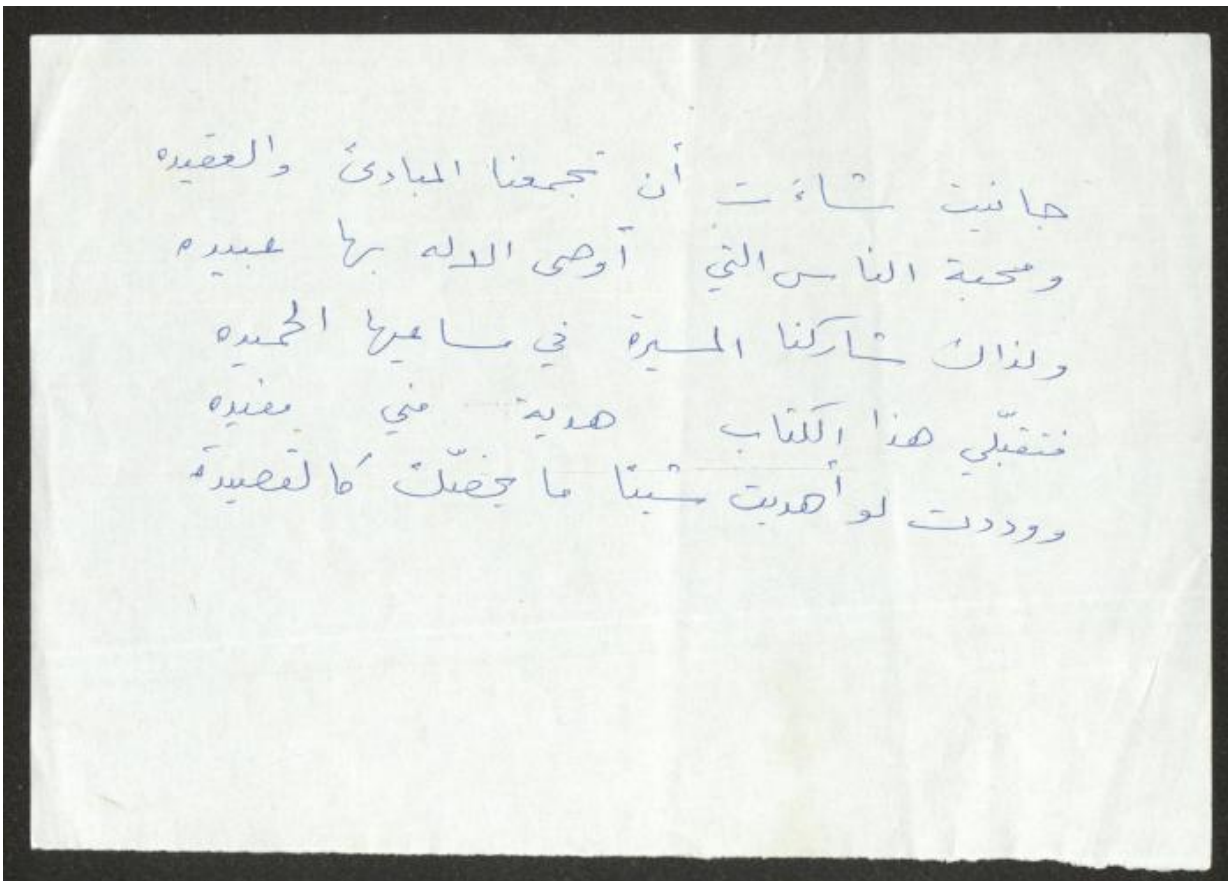 جانيت شاءت أن تجمعنا المبادئ والعقيده
ومحبة الناس التي أوصى الاله بها عبيده
ولذاك شاركنا المسيرة في مساعيها الحميده
فتقبّلي هذا الكتاب هدية مني مفيده
ووددت لو أهديت شيئا ما يخصّك كالقصيدة